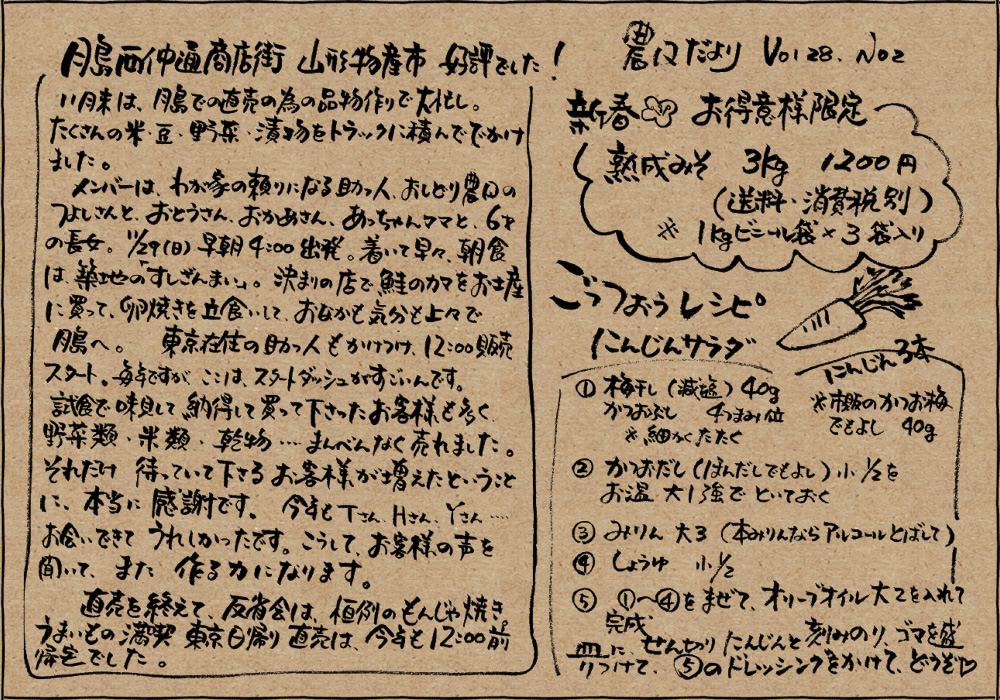 月島西仲通商店街 山形物産市 好評でした!
11月末は、月島での直売の為の品物作りで大忙し。
たくさんの米・豆・野菜・漬物をトラックに積んででかけ
ました。
メンバーは、わが家の頼りになる助っ人、おしどり農口の
つよしさんと、おとうさん、おかあさん、あっちゃんママと、6才
の長女。11/29(日)早朝4:00出発。着いて早々、朝食
は、築地の「すしざんまい」。決まりの店で鮭のカマをお土産
に買って、卵焼きを立食いして、おなかも気分も上々で
月島へ。 東京在住の助っ人もかけつけ、12:00販売
スタート。毎年ですが、ここは、スタートダッシュがすごいんです。
試食で味見して、納得して買って下さったお客様も多く
野菜類・米類・乾物……まんべんなく売れました。
それだけ 待っていて下さる お客様が増えたということ
に、本当に 感謝です。 今年も Tさん、Hさん、Yさん……
お会いできて うれしかったです。こうして、お客様の声を
聞いて、また 作る力になります。
直売を終えて、反省会は、恒例のもんじゃ焼き。
うまいもの満喫 東京日帰り直売は、今年も12:00前
帰宅でした。
農口だより Vol 28. No2
新春 お得意様限定
熟成みそ 3kg 1200円
(送料・消費税別)
※ 1kgビニール袋×3袋入り
ごっつおうレシピ
にんじんサラダ
にんじん3本
① 梅干し(減塩)40g
かつおぶし 4つまみ位
※細かくたたく
※市販のかつお梅
でもよし 40g
② かつおだし(ほんだしでもよし)小1/2を
お湯 大1強で といておく
③ みりん 大3(本みりんならアルコールとばして)
④ しょうゆ 小1/2
⑤ ①〜④をまぜて、オリーブオイル大2を入れて
完成
皿に、せんぎりにんじんと刻みのり、ゴマを盛
りつけて、⑤のドレッシングをかけて、どうぞ♡